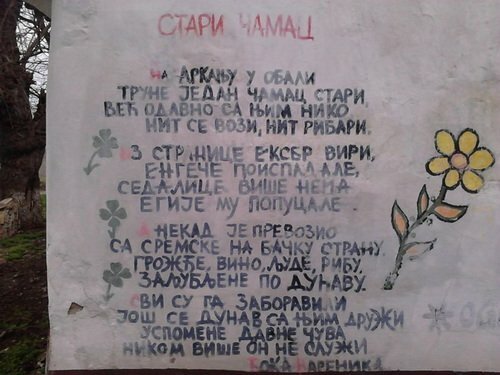 СТАРИ ЧАМАЦ
НА АРКАЊУ У ОБАЛИ
ТРУНЕ ЈЕДАН ЧАМАЦ СТАРИ,
ВЕЋ ОДАВНО СА ЊИМ НИКО
НИТ СЕ ВОЗИ, НИТ РИБАРИ.
ИЗ СТРАНИЦЕ ЕКСЕР ВИРИ,
СЕДАЛИЦЕ ВИШЕ НЕМА
ЕГИЈЕ МУ ПОПУЦАЛЕ.
А НЕКАД ЈЕ ПРЕВОЗИО
СА СРЕМСКЕ НА БАЧКУ СТРАНУ,
ГРОЖЂЕ, ВИНО, ЉУДЕ, РИБУ,
ЗАЉУБЉЕНЕ ПО ДУЋАВУ.
СВИ СУ ГА ЗАБОРАВИЛИ
ЈОШ СЕ ДУНАВ СА ЊИМ ДРУЖИ
УСПОМЕНЕ ДАВНЕ ЧУВА
НИКОМ ВИШЕ ОН НЕ СЛУЖИ
БОКА КАРЕНИКА